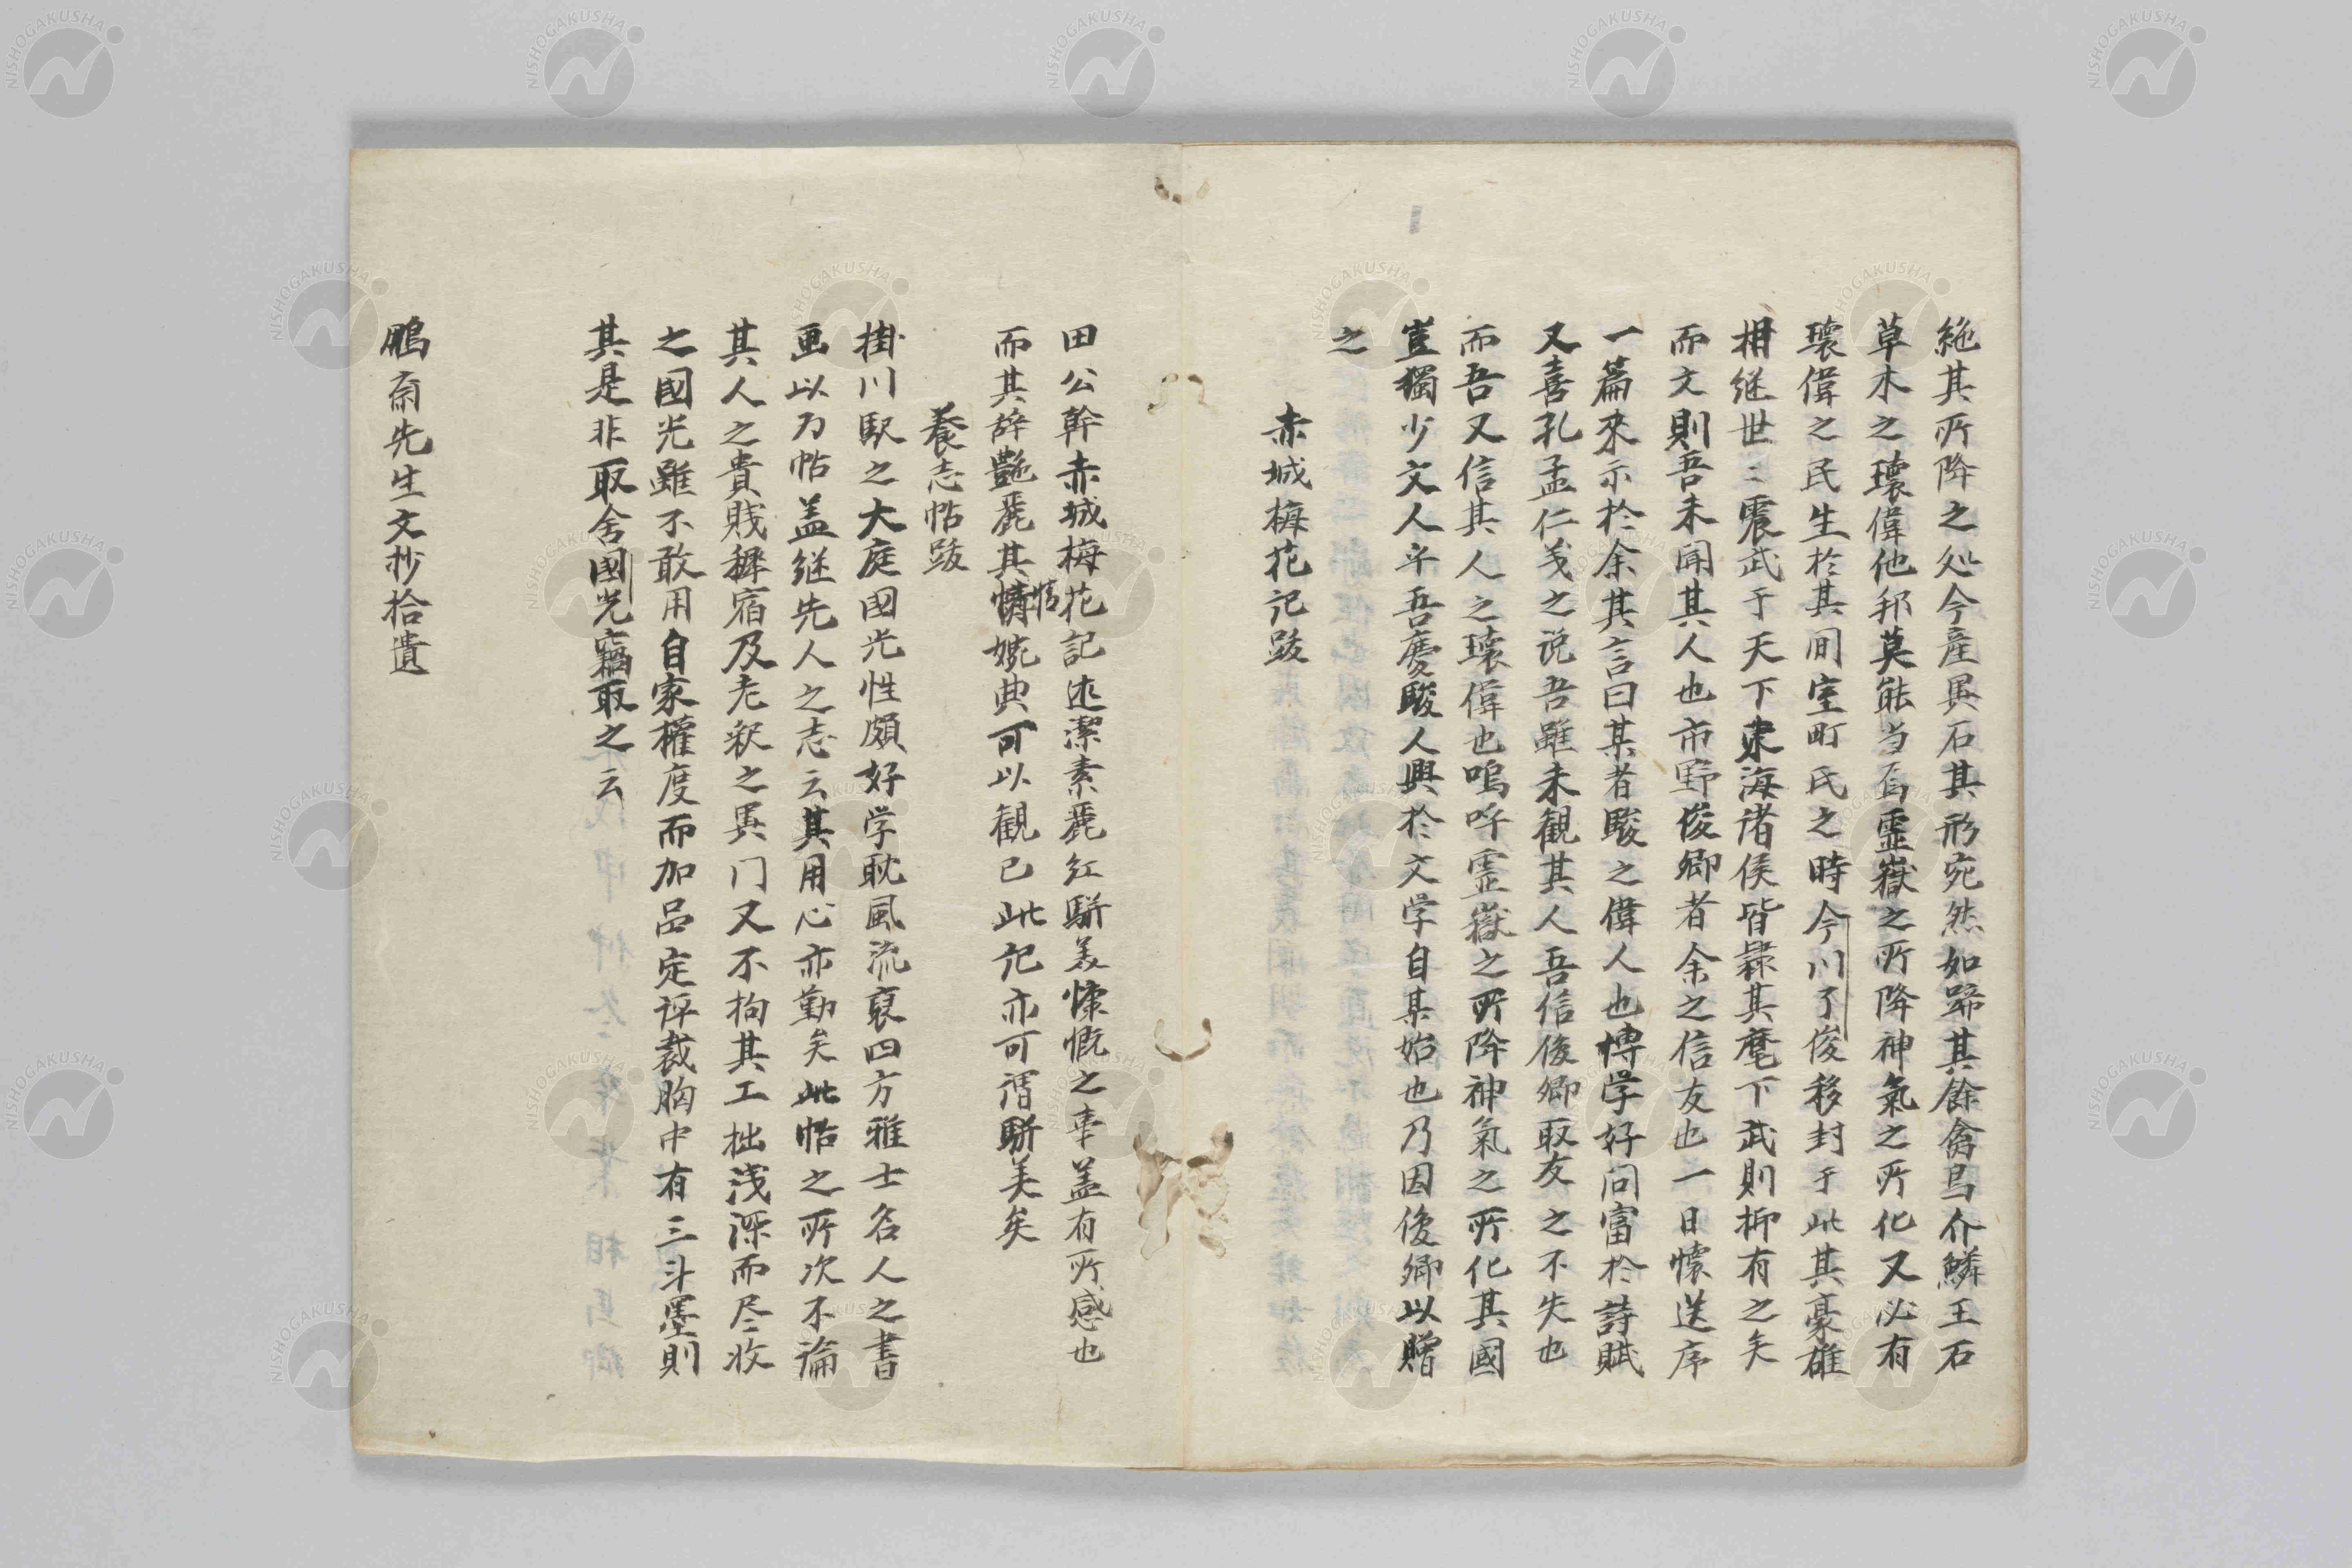 絶其所降之処今産異石其形宛然如蹄其餘禽鳥介鱗玉石
草木之瓌偉他邦莫能当焉霊嶽之所降神氣之所化又必有
瓌偉之民生於其间室町氏之時今川了俊移封于此其豪雄
相継世々震武于天下東海诸侯皆隷其麾下武則抑有之矣
而文則吾未闻其人也市野俊卿者余之信友也一日懐送序
一篇來示於余其言曰某者駿之偉人也博学好问富於詩賦
又喜孔孟仁义之说吾雖未観其人吾信俊卿取友之不失也
而吾又信其人之瓌偉也嗚呼霊嶽之所降神氣之所化其國
豈獨少文人乎吾慶駿人興於文学自某始也乃因俊卿以贈
之
赤城梅花記跋
田公幹赤城梅花記述潔素麗红駢美慷慨之事盖有所感也
而其辞艶麗其情婉典可以観已此记亦可谓駢美矣
養志帖跋
掛川駅之大庭國光性頗好学耽風流裒四方雅士名人之書
画以为帖盖継先人之志云其用心亦勤矣此帖之所次不論
其人之貴賎穉宿及老釈之異门又不拘其工拙浅深而尽收
之國光雖不敢用自家權度而加品定评裁胸中有三斗墨則
其是非取舍國光竊取之云
鵬斎先生文抄拾遺
NISHOGAKUSHA